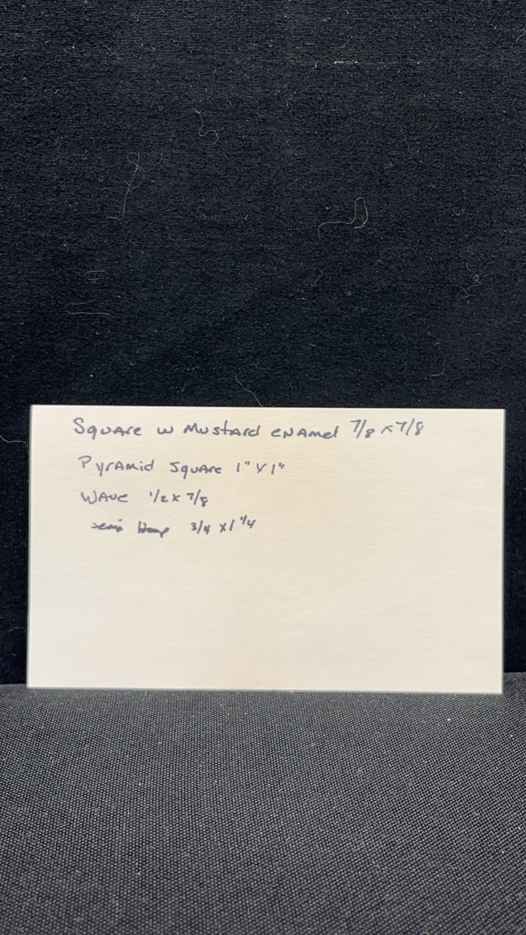 Square w Mustard enamel 7/8 x 7/8
Pyramid Square 1" x 1"
Wave 1/2 x 7/8
3/4 x 1 1/4